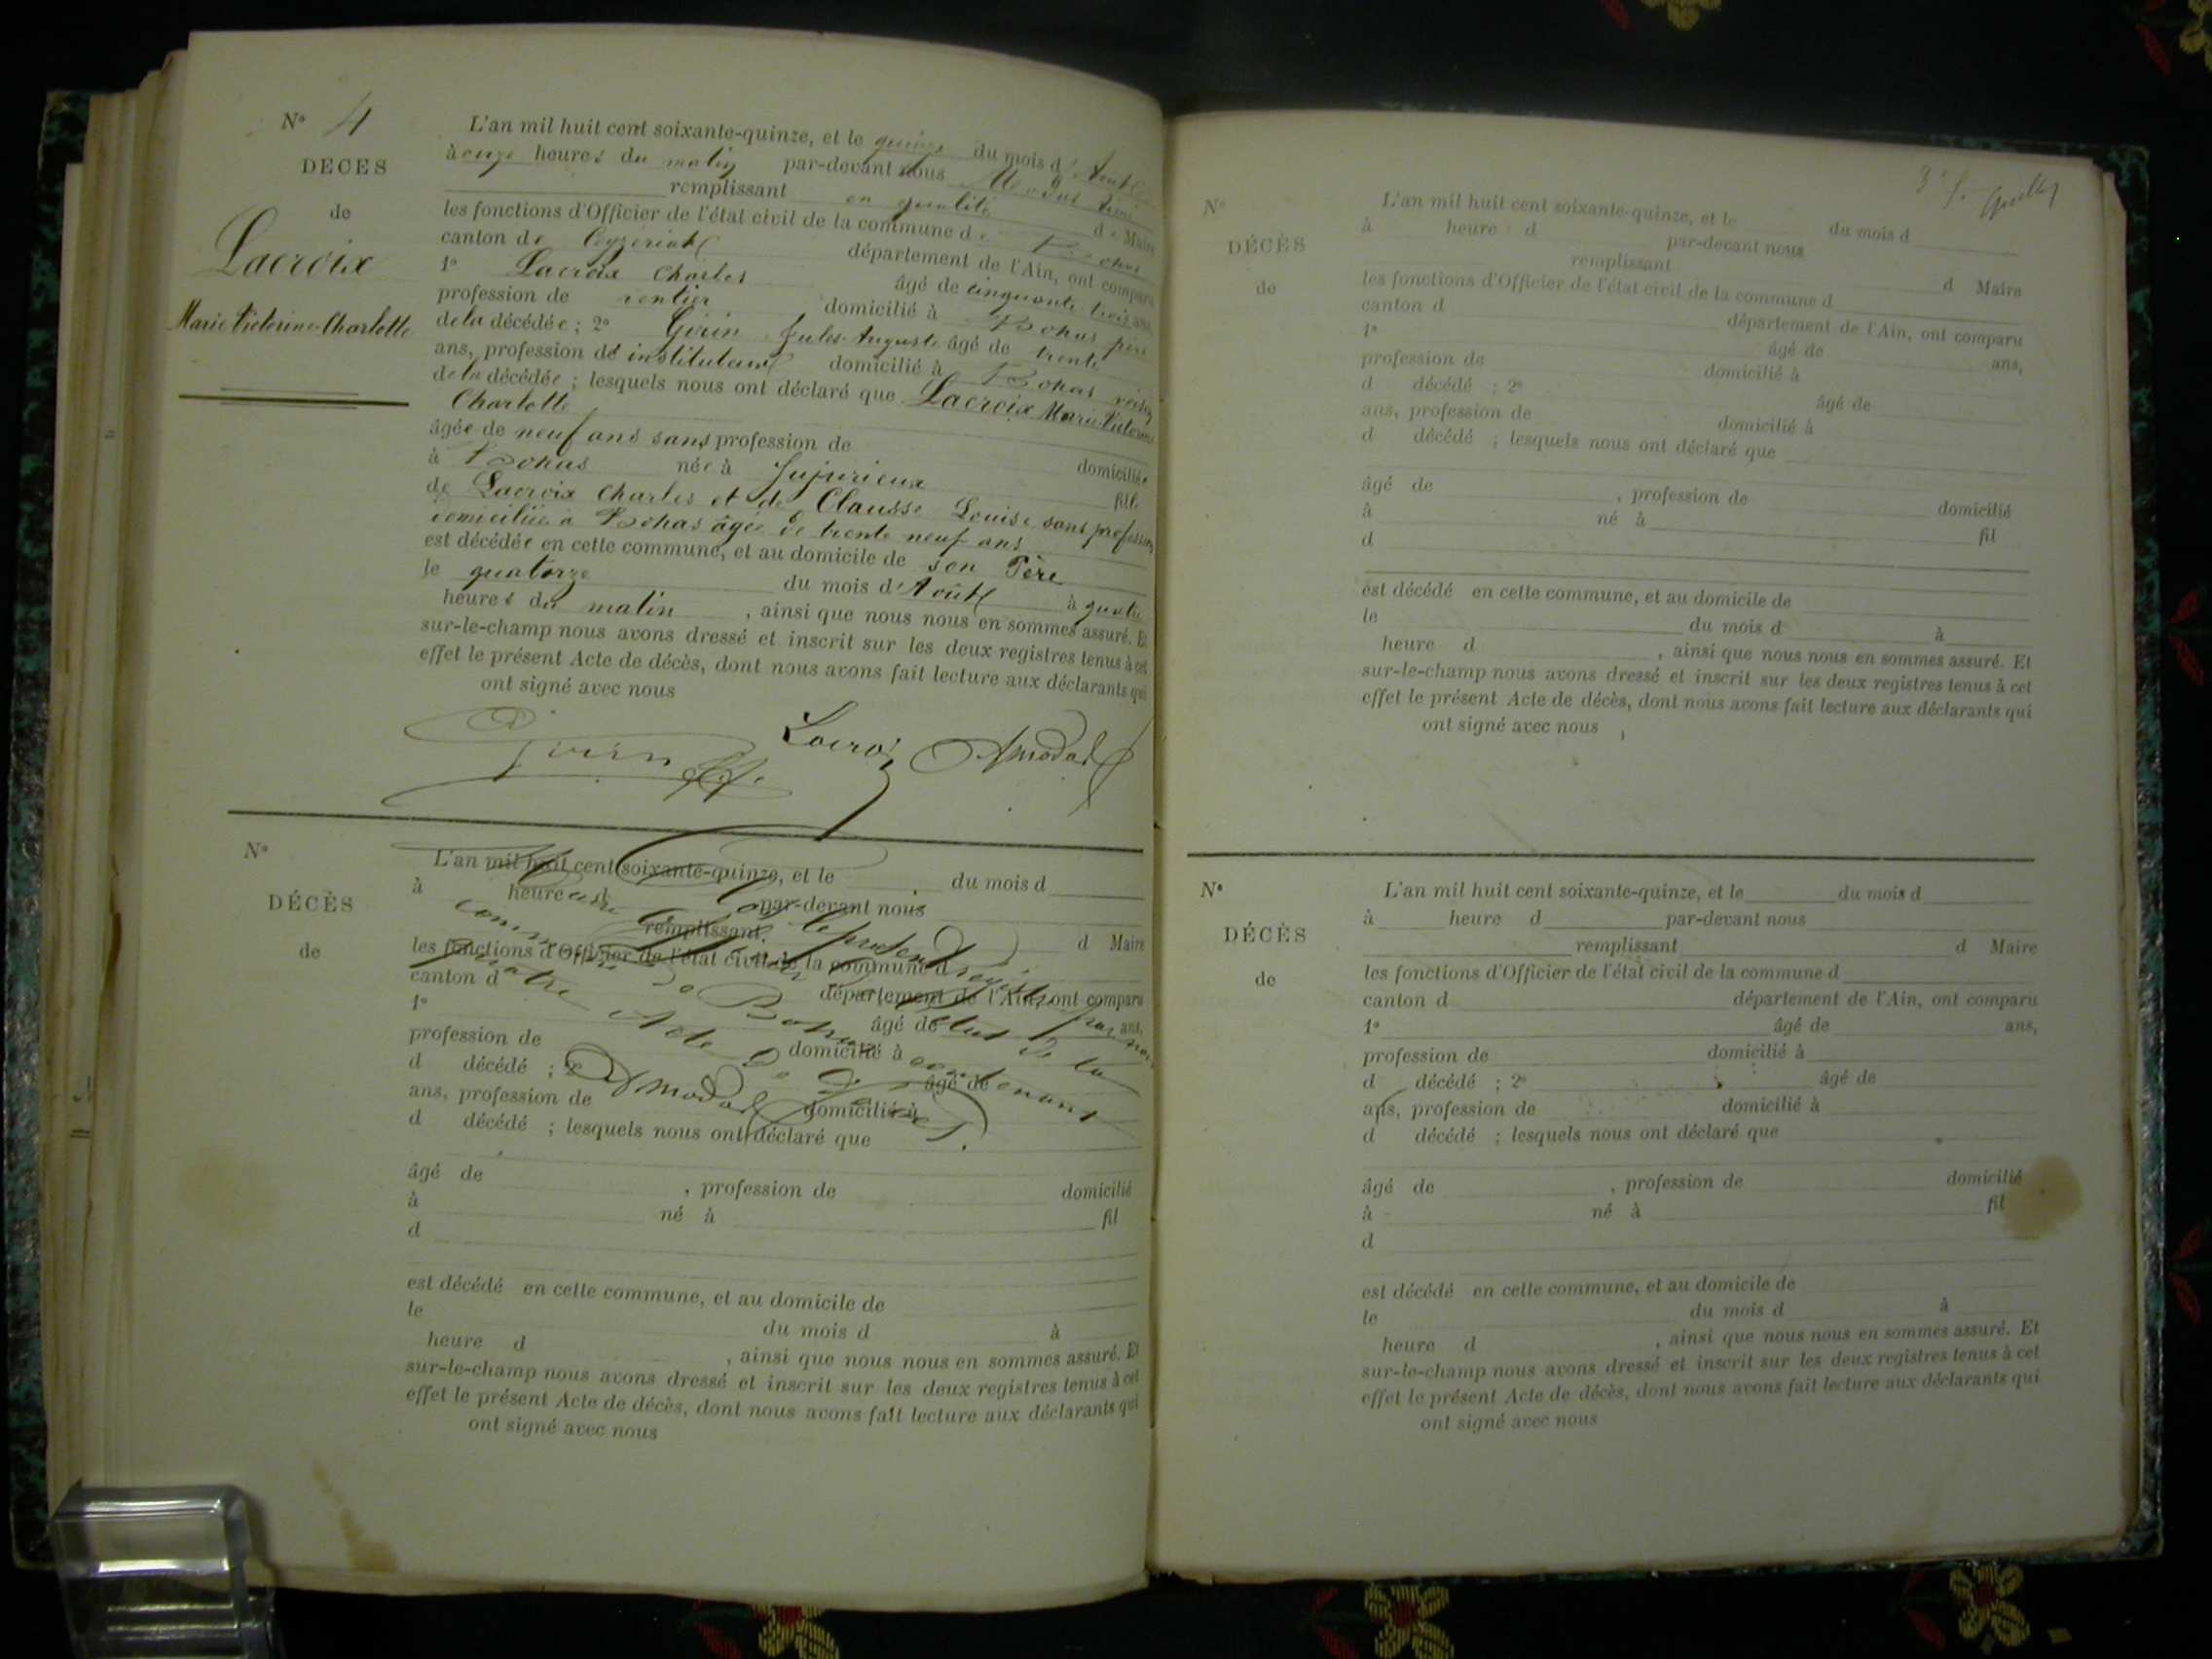 N° 4
DECES
de
Lacroix
Marie Victorine Charlotte
L'an mil huit cent soixante-quinze, et le quinze du mois d'Août
à onze heures du matin par-devant nous
remplissant en qualité de Maire
les fonctions d'Officier de l'état civil de la commune de Bohas
canton de Ceyzériat département de l'Ain, ont comparu
1° Lacroix Charles âgé de cinquante trois ans,
profession de rentier domicilié à Bohas père
de la décédée ; 2° Girin Jules Auguste âgé de trente
ans, profession de instituteur domicilié à Bohas voisin
de la décédée ; lesquels nous ont déclaré que Lacroix Marie Victorine
Charlotte
âgée de neuf ans sans profession de domiciliée
à Bohas née à Jujurieux fille
de Lacroix Charles et de Clausse Louise sans profession
domiciliée à Bohas âgée de trente neuf ans
est décédée en cette commune, et au domicile de son Père
le quatorze du mois d'Août à quatre
heures du matin , ainsi que nous nous en sommes assuré. Et
sur-le-champ nous avons dressé et inscrit sur les deux registres tenus à cet
effet le présent Acte de décès, dont nous avons fait lecture aux déclarants qui
ont signé avec nous
Girin Lacroix Amodat
N°
DÉCÈS
de
L'an mil huit cent soixante-quinze, et le du mois d
à heure d par-devant nous
remplissant d Maire
les fonctions d'Officier de l'état civil de la commune d
canton d département de l'Ain, ont comparu
1° âgé de ans,
profession de domicilié à
d décédé ; 2° âgé de
ans, profession de domicilié à
d décédé ; lesquels nous ont déclaré que
le présent registre par nous
commune de Bohas contenant
quatre Actes de Décès.
Amodat
âgé de , profession de domicilié
à né à fil
d
est décédé en cette commune, et au domicile de
le du mois d à
heure d , ainsi que nous nous en sommes assuré. Et
sur-le-champ nous avons dressé et inscrit sur les deux registres tenus à cet
effet le présent Acte de décès, dont nous avons fait lecture aux déclarants qui
ont signé avec nous
N°
DÉCÈS
de
L'an mil huit cent soixante-quinze, et le du mois d
à heure d par-devant nous
remplissant d Maire
les fonctions d'Officier de l'état civil de la commune d
canton d département de l'Ain, ont comparu
1° âgé de ans,
profession de domicilié à
d décédé ; 2° âgé de
ans, profession de domicilié à
d décédé ; lesquels nous ont déclaré que
âgé de , profession de domicilié
à né à fil
d
est décédé en cette commune, et au domicile de
le du mois d à
heure d , ainsi que nous nous en sommes assuré. Et
sur-le-champ nous avons dressé et inscrit sur les deux registres tenus à cet
effet le présent Acte de décès, dont nous avons fait lecture aux déclarants qui
ont signé avec nous
N°
DÉCÈS
de
L'an mil huit cent soixante-quinze, et le du mois d
à heure d par-devant nous
remplissant d Maire
les fonctions d'Officier de l'état civil de la commune d
canton d département de l'Ain, ont comparu
1° âgé de ans,
profession de domicilié à
d décédé ; 2° âgé de
ans, profession de domicilié à
d décédé ; lesquels nous ont déclaré que
âgé de , profession de domicilié
à né à fil
d
est décédé en cette commune, et au domicile de
le du mois d à
heure d , ainsi que nous nous en sommes assuré. Et
sur-le-champ nous avons dressé et inscrit sur les deux registres tenus à cet
effet le présent Acte de décès, dont nous avons fait lecture aux déclarants qui
ont signé avec nous